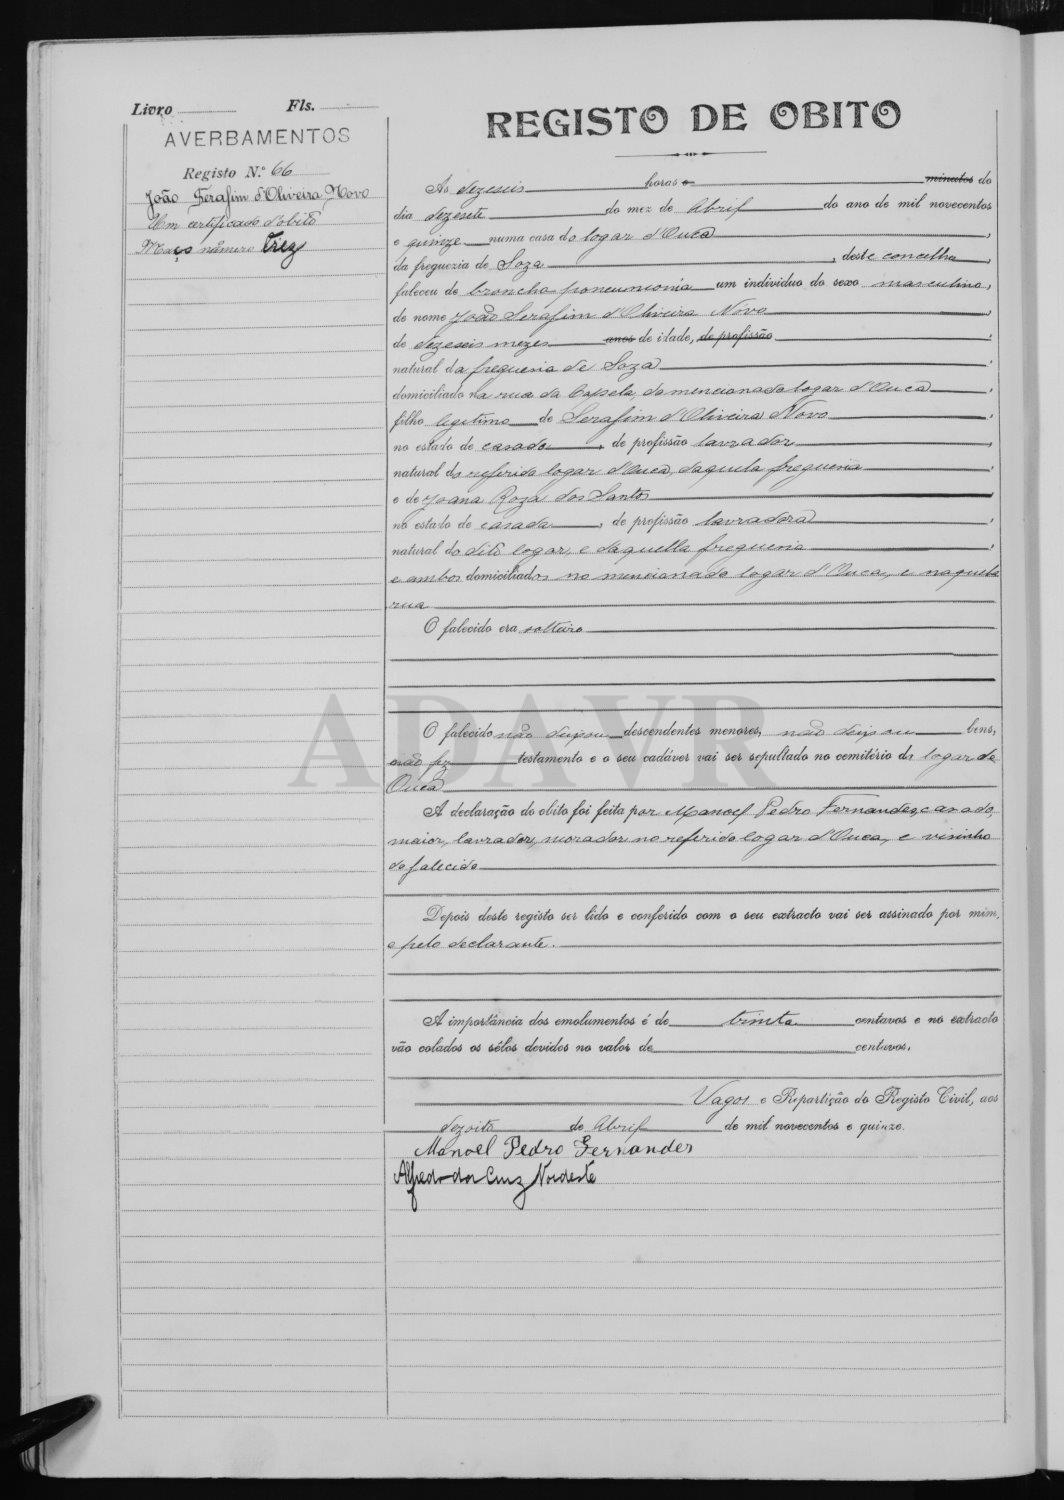 Livro Fls.
AVERBAMENTOS
Registo N.º 66
João Serafim d'Oliveira Novo
Um certificado d'obito
Maço número trez
REGISTO DE OBITO
Ás dezeseis horas e minutos do
dia dezesete do mez de Abril do ano de mil novecentos
e quinze numa casa do logar d'Ouca,
da freguezia de Soza, deste concelho,
faleceu de broncho pneumonia um individuo do sexo masculino,
de nome João Serafim d'Oliveira Novo,
de dezeseis mezes anos de idade, de profissão,
natural da freguesia de Soza,
domiciliado na rua da Capela, do mencionado logar d'Ouca,
filho legitimo de Serafim d'Oliveira Novo,
no estado de casado, de profissão lavrador,
natural do referido logar d'Ouca, daquela freguesia,
e de Joana Roza dos Santos
no estado de casada, de profissão lavradora,
natural do dito logar, e daquella freguesia,
e ambos domiciliados no mencionado logar d'Ouca, e naquela
rua
O falecido era solteiro
O falecido não deixou descendentes menores, não deixou bens,
não fez testamento e o seu cadáver vai ser sepultado no cemitério do logar de
Ouca
A declaração do obito foi feita por Manoel Pedro Fernandes, casado,
maior, lavrador, morador no referido logar d'Ouca, e visinho
do falecido
Depois deste registo ser lido e conferido com o seu extracto vai ser assinado por mim,
e pelo declarante.
A importância dos emolumentos é de trinta centavos e no extracto
vão colados os sêlos devidos no valor de centavos.
Vagos e Repartição do Registo Civil, aos
dezoito de Abril de mil novecentos e quinze.
Manoel Pedro Fernandes
Alfredo da Cruz Nordeste
ADAVR